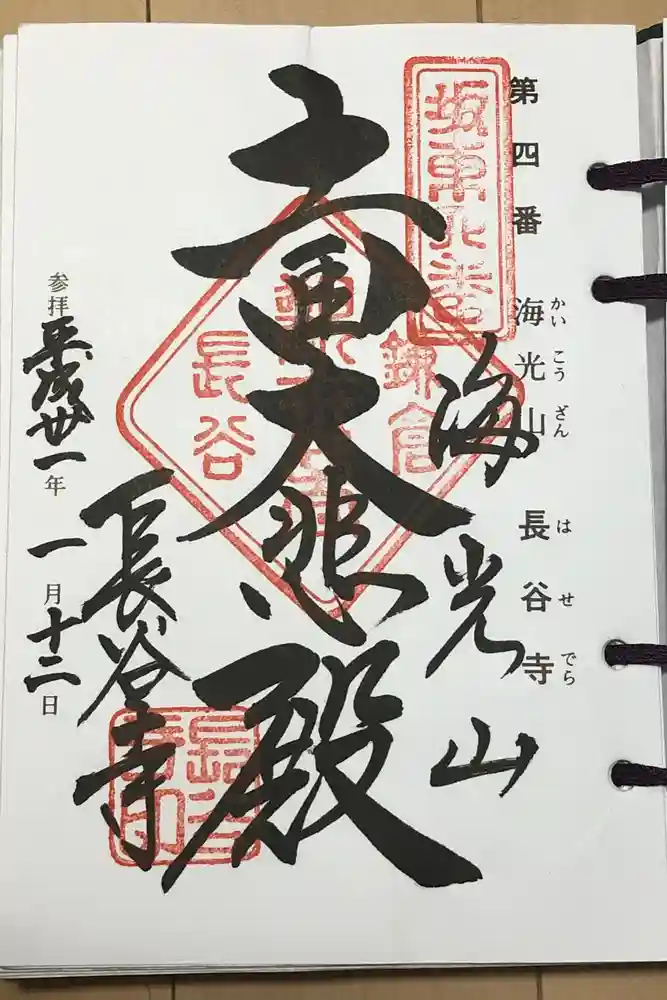 第四番 海光山 長谷寺
かいこうざん はせでら
海光山
十一面大悲殿
長谷寺
参拝 平成廿一年一月十二日
鎌倉
長谷
長谷寺印